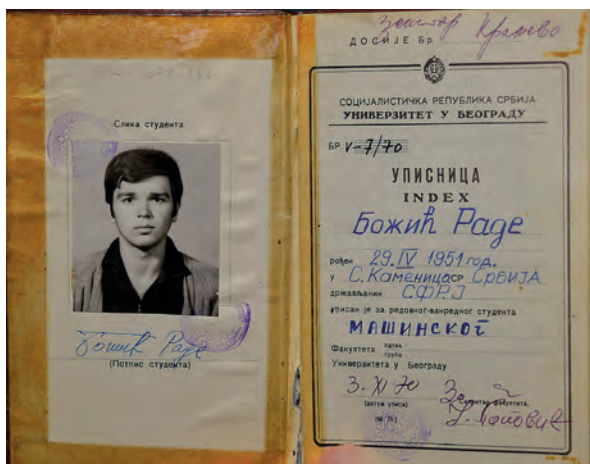 Слика студента
Божић Раде
(Потпис студента)
ДОСИЈЕ Бр.
Краљево
СОЦИЈАЛИСТИЧКА РЕПУБЛИКА СРБИЈА
УНИВЕРЗИТЕТ У БЕОГРАДУ
БР. V-7/70
УПИСНИЦА
INDEX
Божић Раде
рођен 29. IV 1951 год.
у С. Каменица СР СРБИЈА
држављанин СФРЈ
уписан је за редовног-ванредног студента
МАШИНСКОГ
Факултета одсек
група
Универзитета у Београду
3. XI 70
(датум уписа) Секретар факултета,
(М. П.)